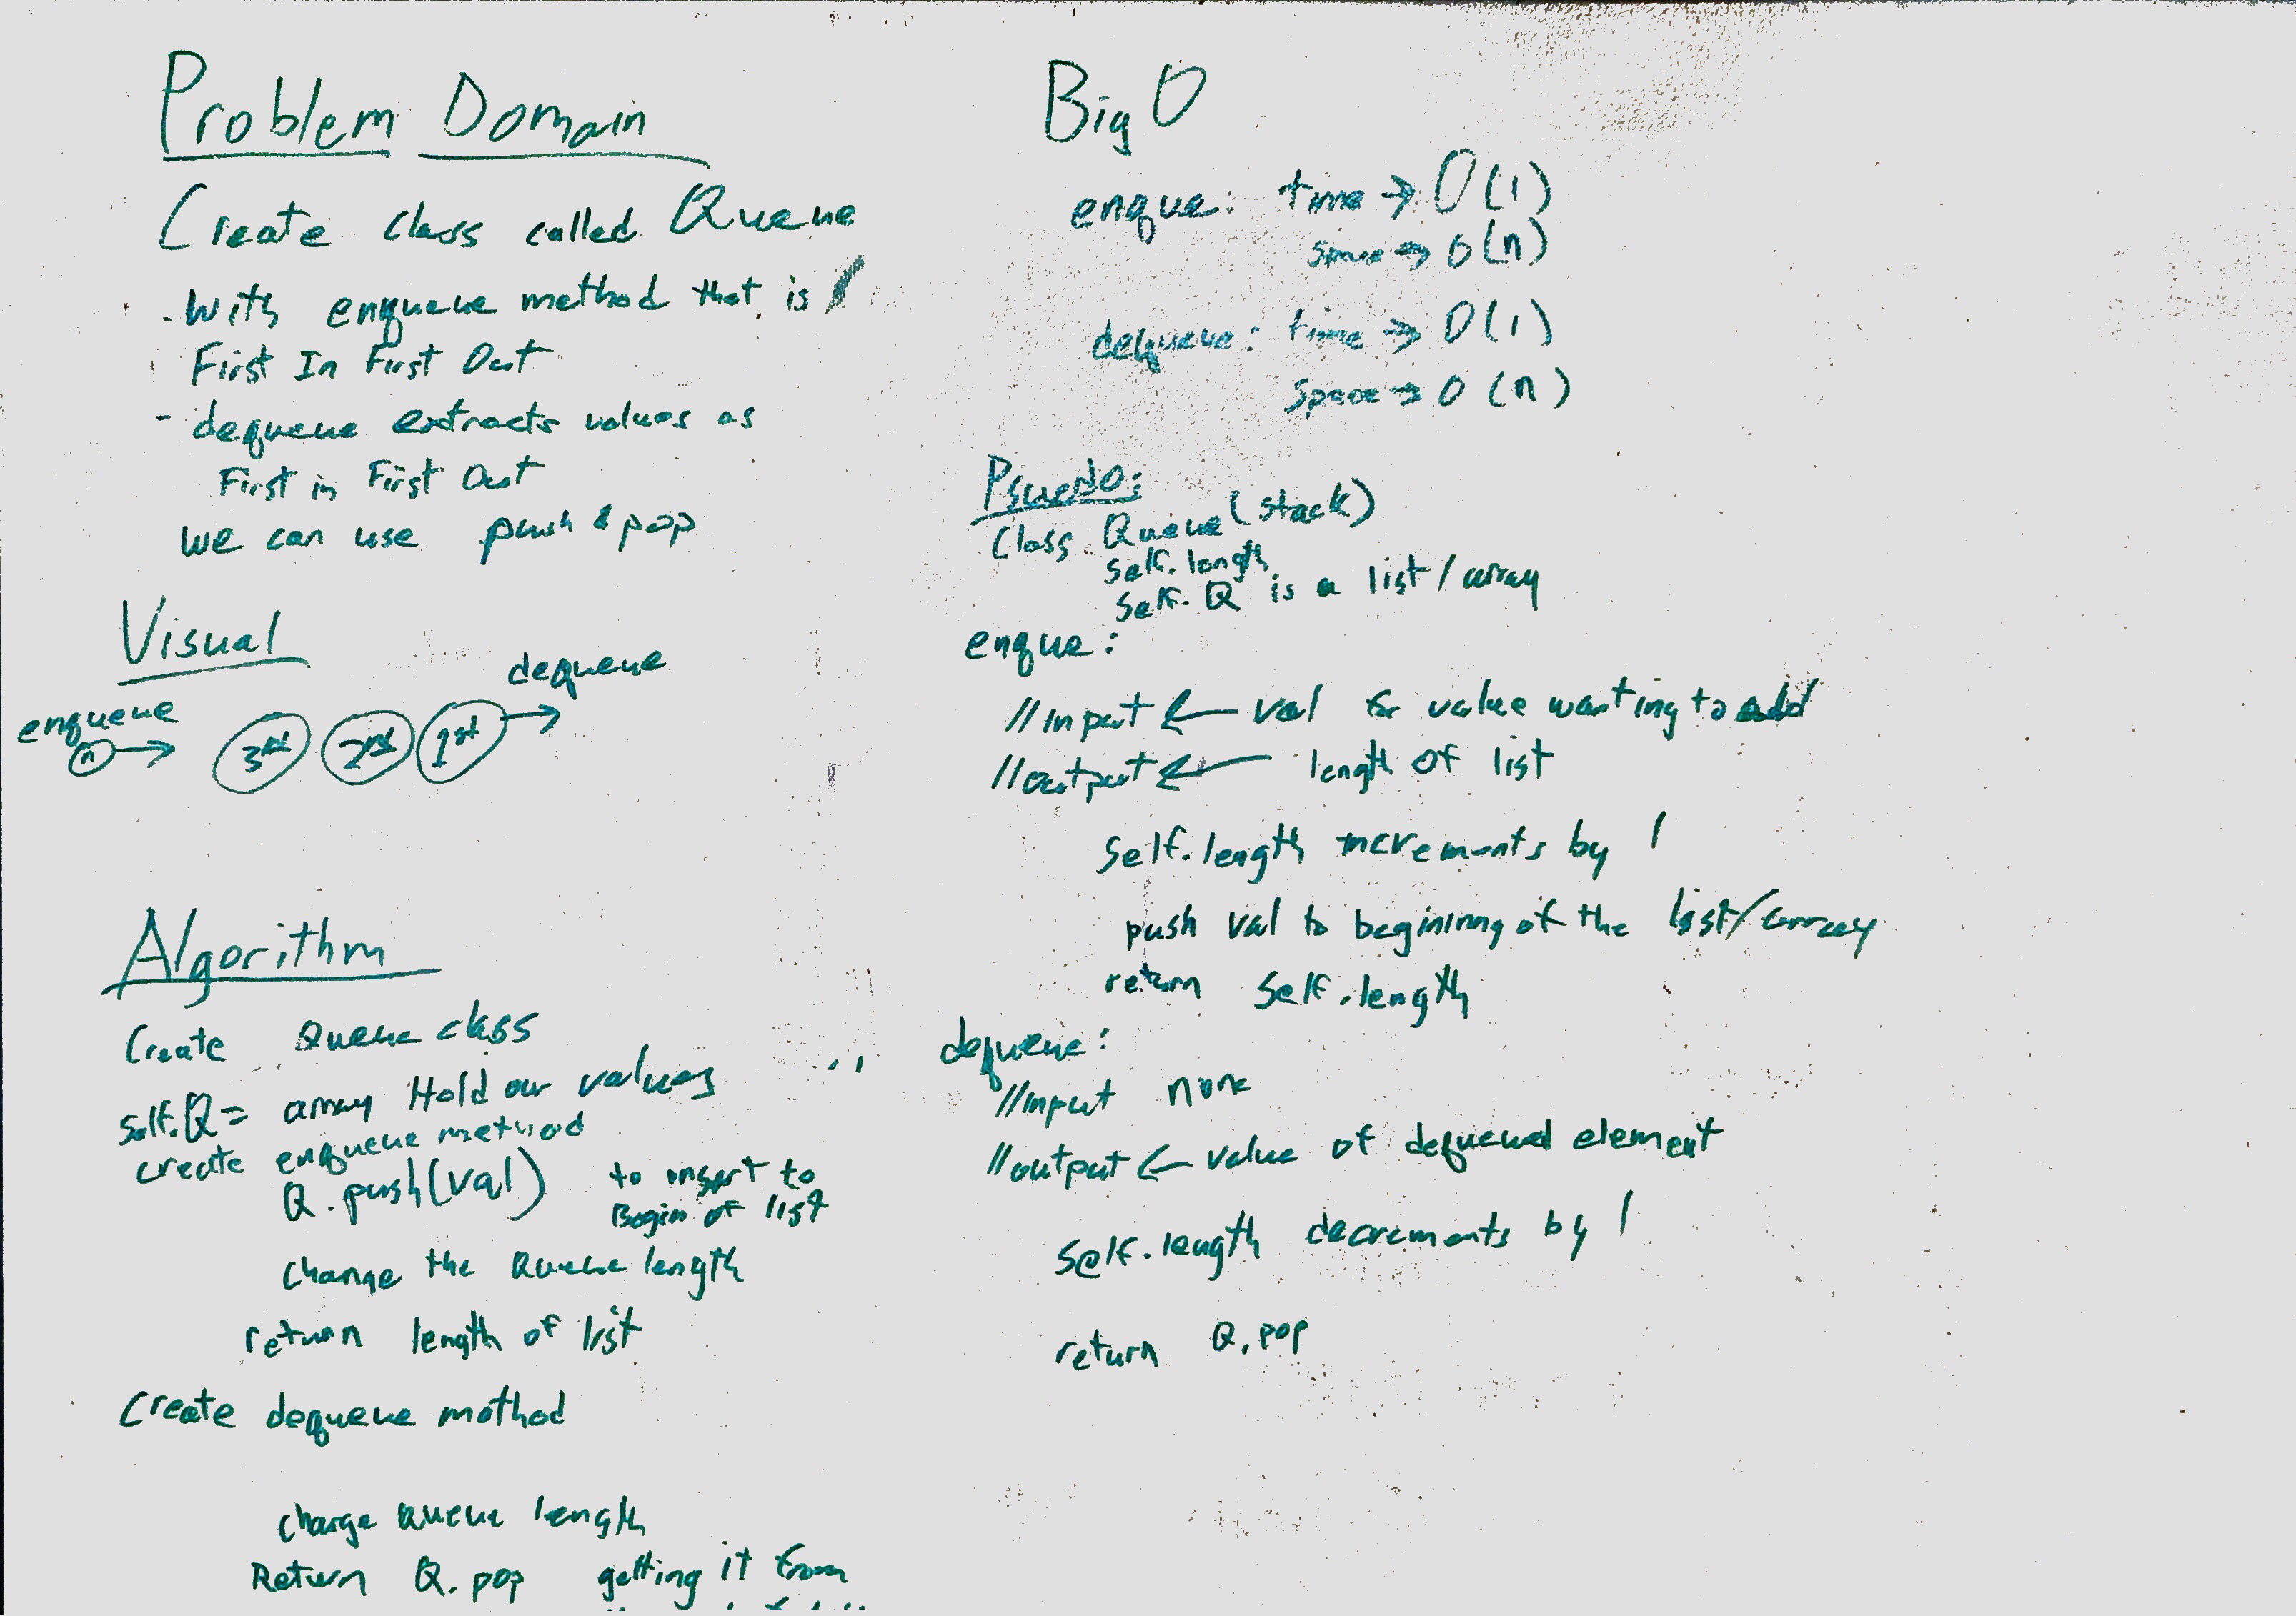 Problem Domain
Create class called Queue
- With enqueue method that is
First In First Out
- dequeue extracts values as
First in First Out
we can use push & pop
Visual
dequeue
enqueue
n → 3rd 2nd 1st →
Algorithm
Create Queue class
self.Q = array Hold our values
create enqueue method
Q.push(val) to insert to
Begin of list
change the Queue length
return length of list
Create dequeue method
change queue length
Return Q.pop getting it from
Big O
enque: time → O(1)
space → O(n)
dequeue: time → O(1)
space → O(n)
Psuedo:
Class Queue (stack)
self.length
self.Q is a list/array
enque:
//input ← val for value wanting to add
//output ← length of list
self.length increments by 1
push val to begining of the list/array
return self.length
dequeue:
//input none
//output ← value of dequeued element
self.length decrements by 1
return Q.pop